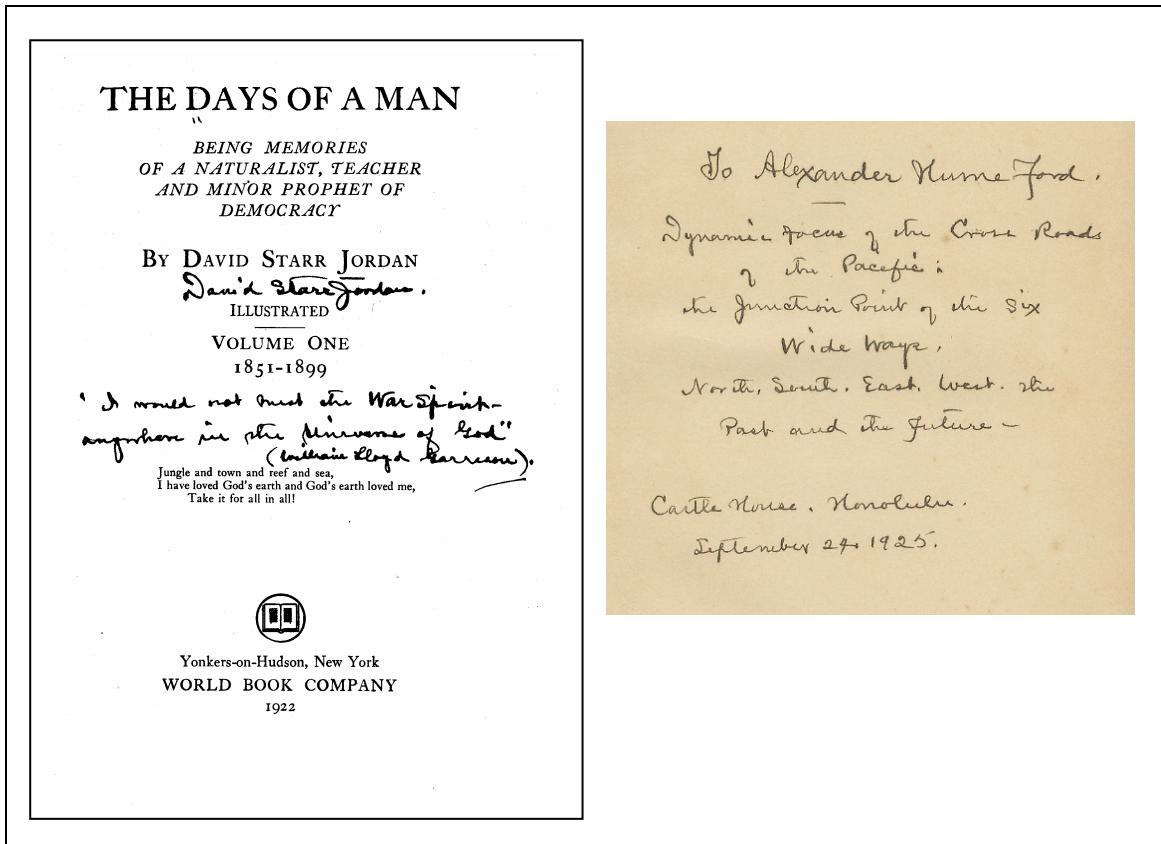 THE DAYS OF A MAN
BEING MEMORIES
OF A NATURALIST, TEACHER
AND MINOR PROPHET OF
DEMOCRACY
BY DAVID STARR JORDAN
David Starr Jordan.
ILLUSTRATED
VOLUME ONE
1851-1899
"I would not trust the War Spirit
anywhere in the Universe of God"
(William Lloyd Garrison).
Jungle and town and reef and sea,
I have loved God's earth and God's earth loved me,
Take it for all in all!
Yonkers-on-Hudson, New York
WORLD BOOK COMPANY
1922
To Alexander Hume Ford.
Dynamic Focus of the Cross Roads
of the Pacific:
the Junction Point of the Six
Wide Ways,
North, South, East, West, the
Past and the Future –
Castle House, Honolulu.
September 24, 1925.